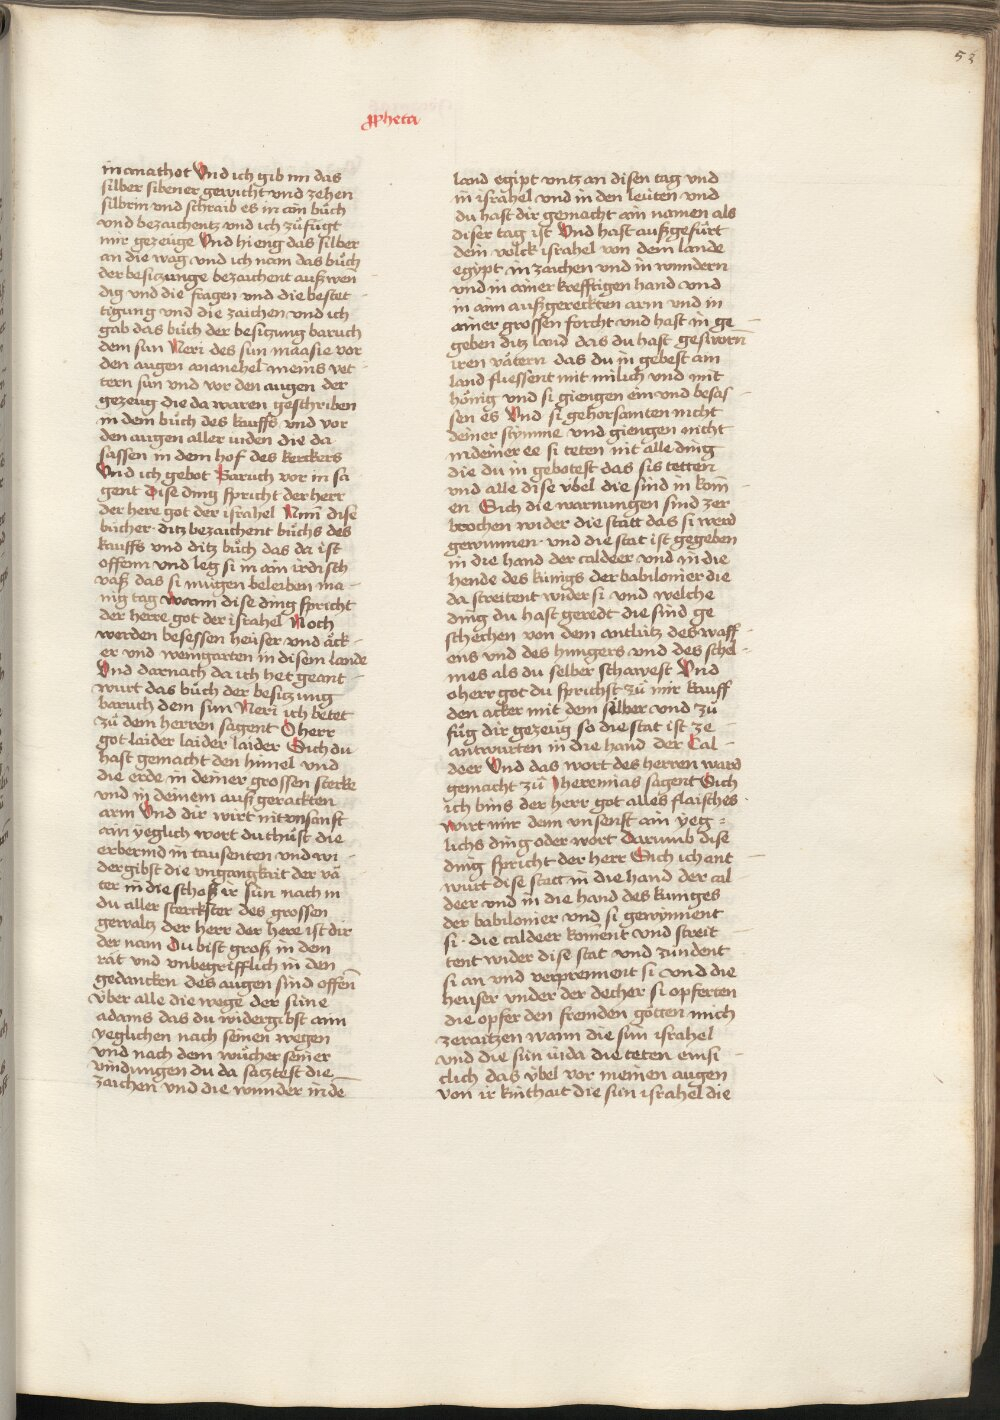 53
ꝓpheta
in anathot Vnd ich gib im das
silber sibener gewicht vnd zehen
silbrin vnd schraib es in ain bůch
vnd bezaichentz vnd ich zůfůgt
mir gezeuge Vnd hieng das silber
an die wag vnd ich nam das bůch
der besiczunge bezaichent außwen
dig vnd die fragen vnd die bestet -
tigung vnd die zaichen vnd ich
gab das bůch der besiczung baruch
dem sun Neri des sun maasie vor
den augen ananehel meins vet -
tern sun vnd vor den augen der
gezeug die da waren geschriben
in dem bůch des kauffs vnd vor
den augen aller iuden die da
sassen in dem hof des kerckers
Vnd ich gebot Baruch vor in sa
gent Dise ding spricht der herr
der here got der israhel Nim̄ dise
bücher ditz bezaichent bůchs des
kauffs vnd ditz bůch das da ist
offenn vnd leg si in ain irdisch
vaß das si mügen beleiben ma -
nig tag wann dise ding spricht
der herre got der israhel Noch
werden besessen heüser vnd äck -
er vnd weingarten in disem lande
Vnd darnach da ich het geant -
wurt das bůch der besiczung
baruch dem sun Neri ich betet
zů dem herren sagent O herr
got laider laider laider Sich du
hast gemacht den himel vnd
die erde in deiner grossen stercke
vnd in deinem auß gerackten
arm Vnd dir wirt nit vnsanft
ain yeglich wort du thůst die
erbermd in tausenten vnd wi -
dergibst die vngangkait der vä
ter in die schoß ir sün nach in
du aller sterckster des grossen
gewaltz der herr der here ist dir
der nam Du bist groß in dem
rät vnd vnbegrifflich in den
gedancken des augen sind offen̄
v̈ber alle die wege der süne
adams das du widergibst aim
yeglichen nach seinen wegen
vnd nach dem wůcher seiner
vindungen du da sacztest die
zaichen vnd die wunder in de
land egipt vntz an disen tag vnd
in israhel vnd in den leuten vnd
du hast dir gemacht ain namen als
diser tag ist Vnd hast außgefürt
dein volck israhel von dem lande
egypt in zaichen vnd in wundern
vnd in ainer krefftigen hand vnd
in aim außgereckten arm vnd in
ainer grossen forcht vnd hast in ge -
geben ditz land das du hast gesworn
iren vätern das du in gebest ain
land fliessent mit milich vnd mit
hönig vnd si giengen ein vnd besas -
sen es Vnd si gehorsamten nicht
deiner stymme vnd giengen nicht
in deiner ee si teten nit alle ding
die du in gebotest das sis tetten
vnd alle dise v̈bel die sind in kom̄ -
en Sich die warnungen sind zer
brochen wider die statt das si werd
gewunnen vnd die stat ist gegeben
in die hand der caldeer vnd in die
hende des künigs der babilonier die
da streitent wider si vnd welche
ding du hast geredt die sind ge
schechen von dem antlütz des waff -
ens vnd des hungers vnd des schel -
mes als du selber schawest Vnd
o herr got du sprichst zů mir kauff
den acker mit dem silber vnd zů
füg dir gezeug so die stat ist ze
antwurten in die hand der Cal -
deer Vnd das wort des herren ward
gemacht zů Jheremias sagent Sich
ich bins der herr got alles flaisches
Wirt mir denn vnsenft ain yeg =
lichs ding oder wort Darumb dise
ding spricht der herr Sich ich ant
wurt dise statt in die hand der cal -
deer vnd in die hand des kuniges
der babilonier vnd si gewynnent
si . die caldeer kom̄ent vnd streit
tent wider dise stat vnd zündent
si an vnd verprennent si vnd die
heuser vnder der decher si opferten
die opfer den fremden götten mich
zeraitzen wann die sün israhel
vnd die sün iuda die teten emsi
clich das v̈bel vor meinen augen
von ir kinthait die sün israhel die